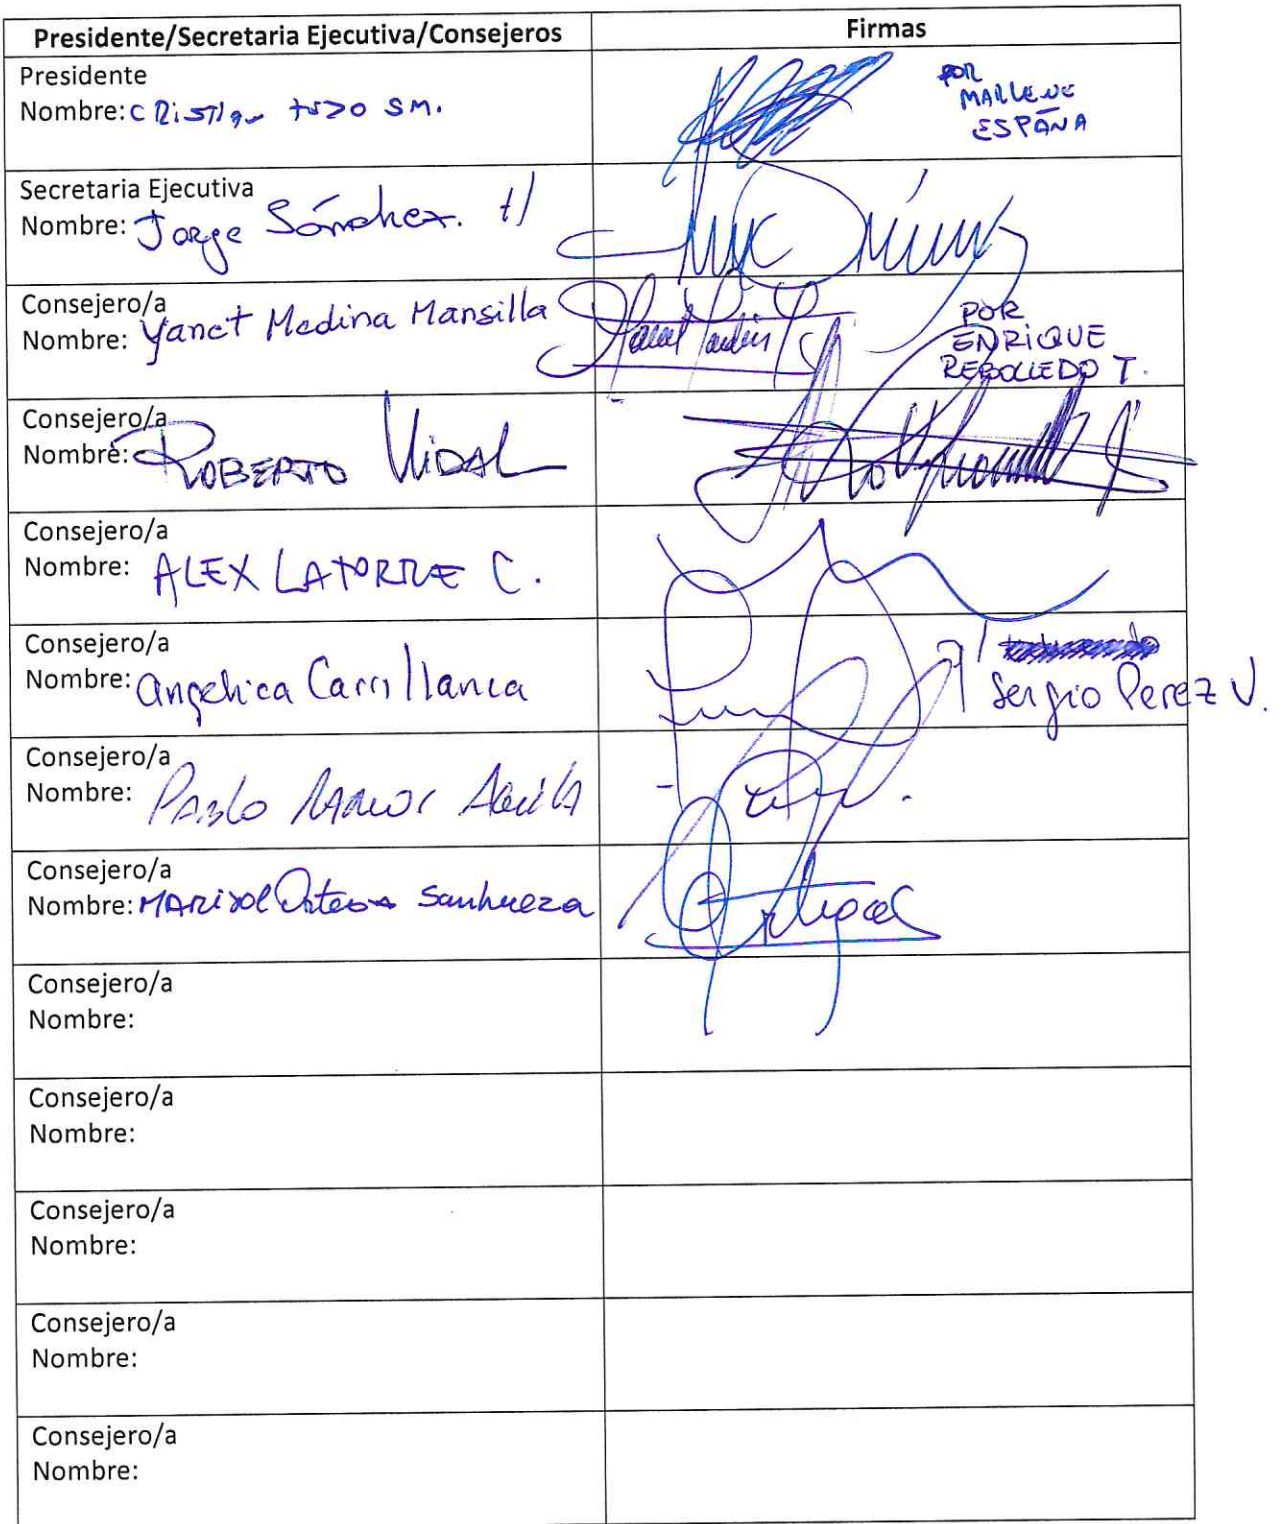 Presidente/Secretaria Ejecutiva/Consejeros
Firmas
Presidente
Nombre: CRISTIAN SM.
POR
MARLENE
ESPAÑA
Secretaria Ejecutiva
Nombre: Jorge Sánchez.
Consejero/a
Nombre: Yanet Medina Mansilla
POR
ENRIQUE
REBOLLEDO T.
Consejero/a
Nombre: ROBERTO VIDAL
Consejero/a
Nombre: ALEX LATORRE C.
Consejero/a
Nombre: Angelica Carrillanca
Sergio Perez V.
Consejero/a
Nombre: Pablo
Consejero/a
Nombre: MARISOL Sanhueza
Consejero/a
Nombre:
Consejero/a
Nombre:
Consejero/a
Nombre:
Consejero/a
Nombre:
Consejero/a
Nombre: